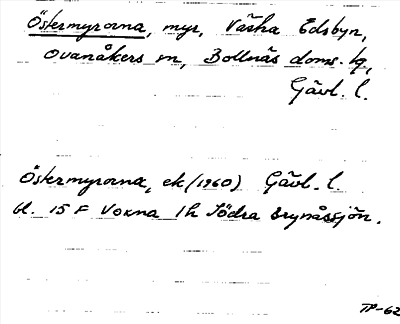 Östermyrorna, myr, Västra Edsbyn,
Ovanåkers sn, Bollnäs doms. tg,
Gävl. l.
Östermyrorna, ek (1960) Gävl. l.
bl. 15 F Voxna 1h Södra Brynåssjön.
TP-62